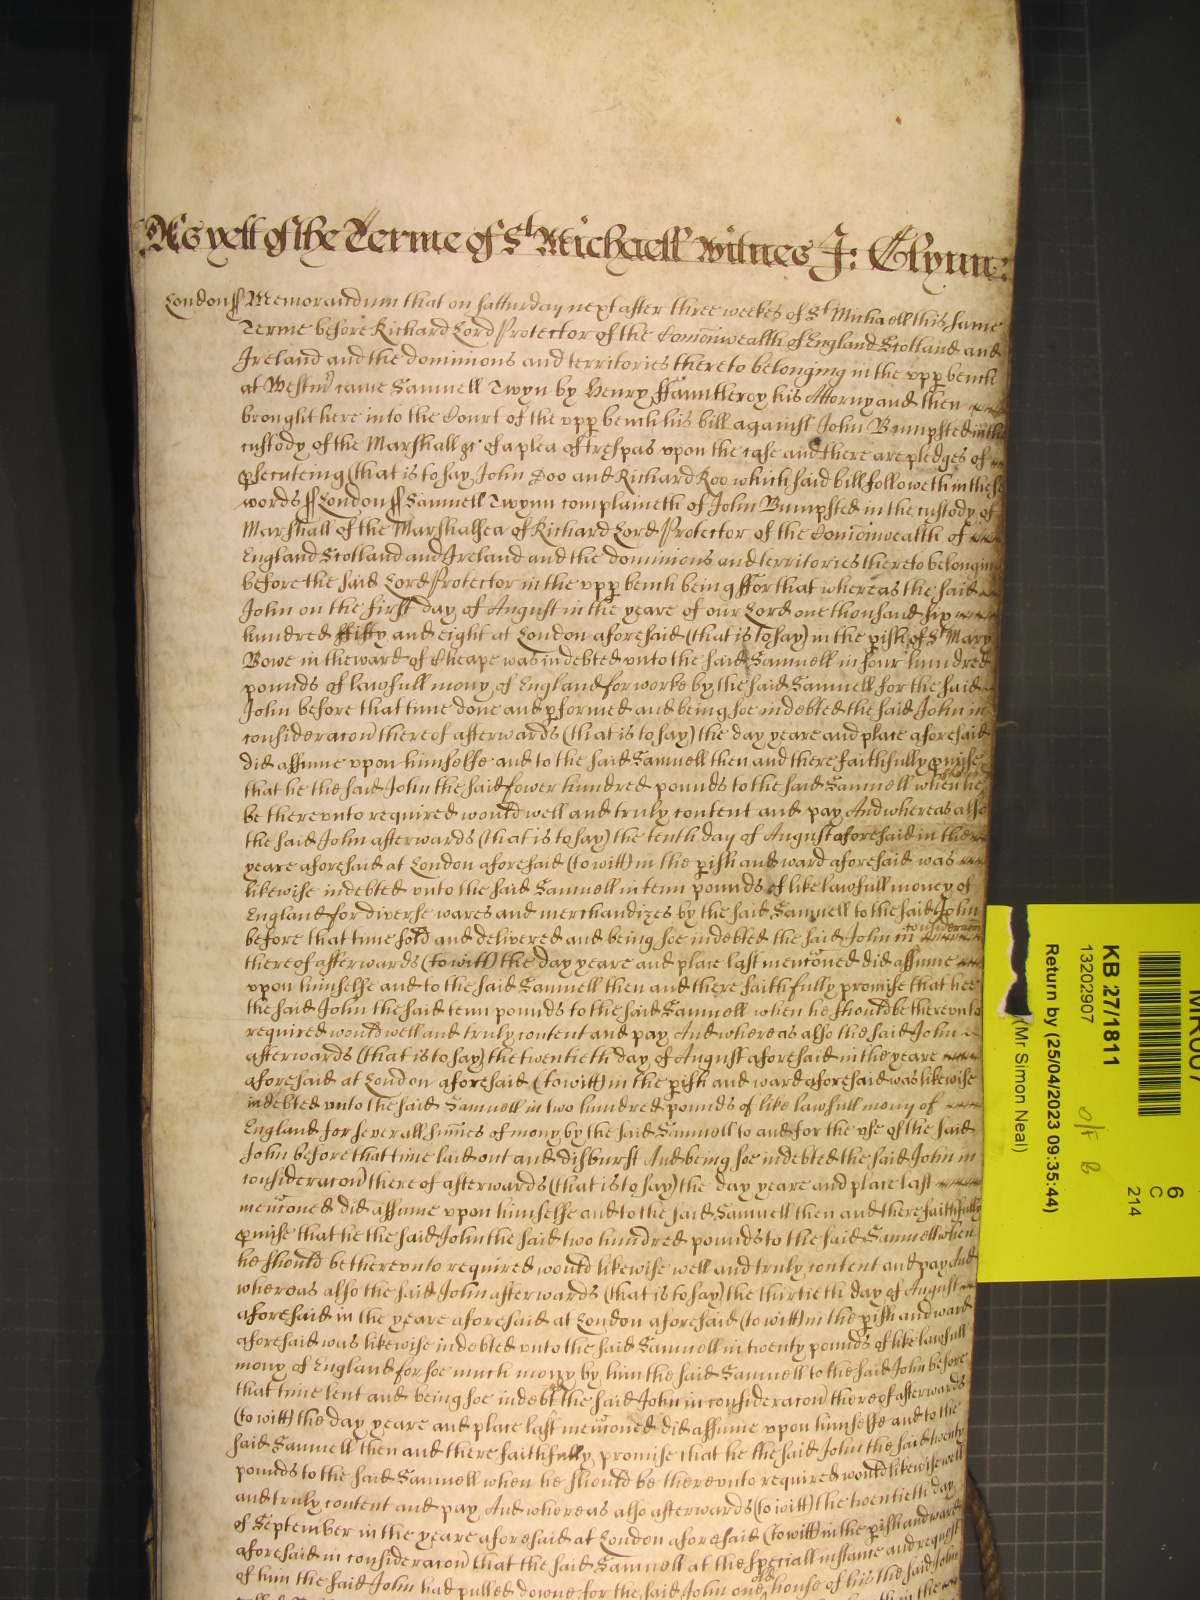 As yett of the Terme of St Michaell Witnes J: Glynn:
London ss Memorandum that on Satturday next after three weekes of St Michaell this same
Terme before Richard Lord Protector of the Comonwealth of England Scotland and
Ireland and the dominions and territories thereto belonging in the upp bench
at Westmr came Samuell Twyn by Henry ffauntleroy his Attorny and then
brought here into the Court of the upp bench his bill against John Bumpsted in the
custody of the Marshall &c of a plea of trespas upon the case and there are pledges of
psecuteing (that is to say John Doo and Richard Roo which said bill followeth in these
words ss London ss Samuell Twynn complaineth of John Bumpsted in the custody of
Marshall of the Marshalsea of Richard Lord Protector of the Comonwealth of
England Scotland and Ireland and the dominions and territories thereto belonging
before the said Lord Protector in the upp bench being ffor that whereas the said
John on the first day of August in the yeare of our Lord one thousand six
hundred ffifty and eight at London aforesaid (that is to say) in the pish of St Mary
Bowe in the ward of Cheape was indebted unto the said Samuell in four hundred
pounds of lawfull mony of England for worke by the said Samuell for the said
John before that time done and pformed and being soe indebted the said John in
consideracon thereof afterwards (that is to say) the day yeare and place aforesaid
did assume upon himselfe and to the said Samuell then and there faithfully pmise
that he the said John the said fower hundred pounds to the said Samuell when he should
be thereunto required would well and truly content and pay And whereas also
the said John afterwards (that is to say) the tenth day of August aforesaid in the
yeare aforesaid at London aforesaid (to witt) in the pish and ward aforesaid was
likewise indebted unto the said Samuell in tenn pounds of like lawfull money of
England for diverse wares and merchandizes by the said Samuell to the said John
before that time sold and delivered and being soe indebted the said John in consideracon
thereof afterwards (to witt) the day yeare and place last menconed did assume
upon himselfe and to the said Samuell then and there faithfully promise that hee
the said John the said tenn pounds to the said Samuell when he should be thereunto
required would well and truly content and pay And whereas also the said John
afterwards (that is to say) the twentieth day of August aforesaid in the yeare
aforesaid at London aforesaid (to witt) in the pish and ward aforesaid was likewise
indebted unto the said Samuell in two hundred pounds of like lawfull mony of
England for severall sumes of mony by the said Samuell to and for the use of the said
John before that time laid out and disburst And being soe indebted the said John in
consideracon thereof afterwards (that is to say) the day yeare and place last
menconed did assume upon himselfe and to the said Samuell then and there faithfully
pmise that he the said John the said two hundred pounds to the said Samuell when
he should be thereunto required would likewise well and truly content and pay And
whereas also the said John afterwards (that is to say) the thirtieth day of August
aforesaid in the yeare aforesaid at London aforesaid (to witt) in the pish and ward
aforesaid was likewise indebted unto the said Samuell in twenty pounds of like lawfull
mony of England for soe much mony by him the said Samuell to the said John before
that time lent and being soe indebt the said John in consideracon thereof afterwards
(to witt) the day yeare and place last menconed did assume upon himselfe and to the
said Samuell then and there faithfully promise that he the said John the said twenty
pounds to the said Samuell when he should be thereunto required would likewise well
and truly content and pay And whereas also afterwards (to witt) the twentieth day
of September in the yeare aforesaid at London aforesaid (to witt) in the pish and ward
aforesaid in consideracon that the said Samuell at the speciall instance and request
of him the said John had pulled downe for the said John one old house of his the said John
KB 27/1811
13202907
Return by (25/04/2023 09:35:44)
(Mr Simon Neal)
6
C
214